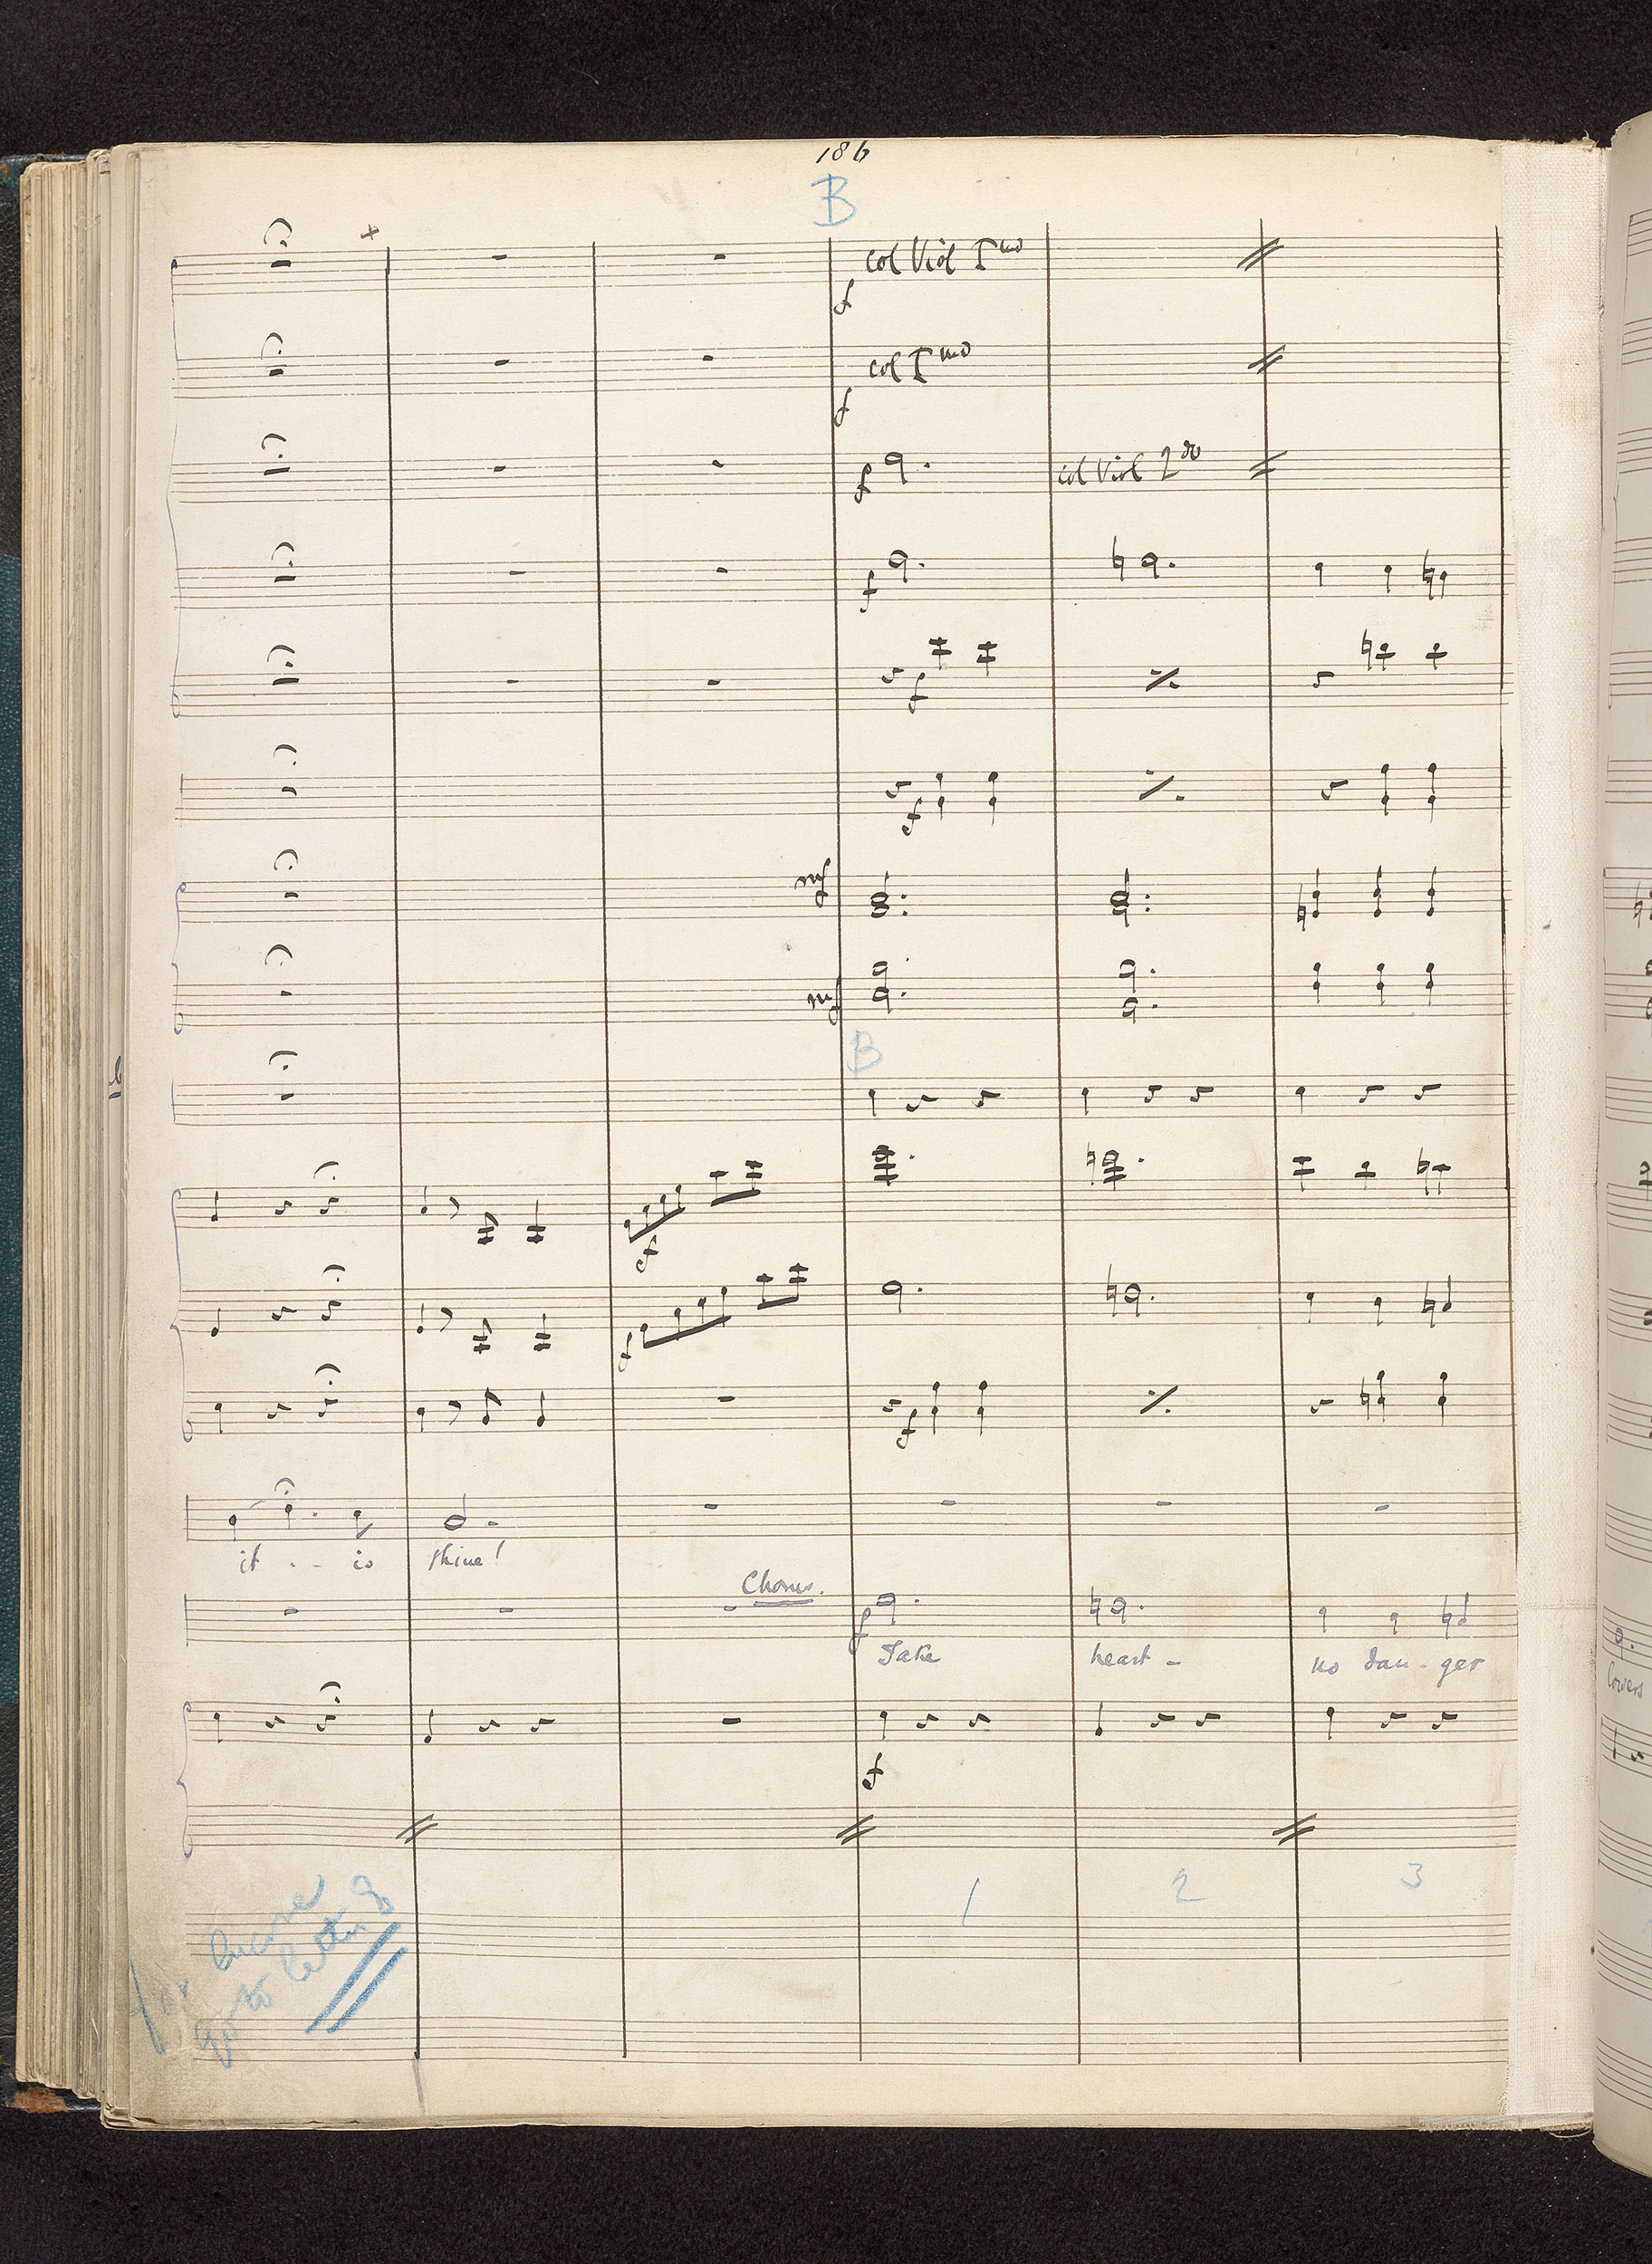 186
B
col Viol Imo
f
col Imo
f
f
col Viol 2do
f
f
f
mf
mf
B
f
f
f
it . - is thine!
Chorus.
f
Take heart - no dan - ger
f
1 2 3
for encore
go to letter B